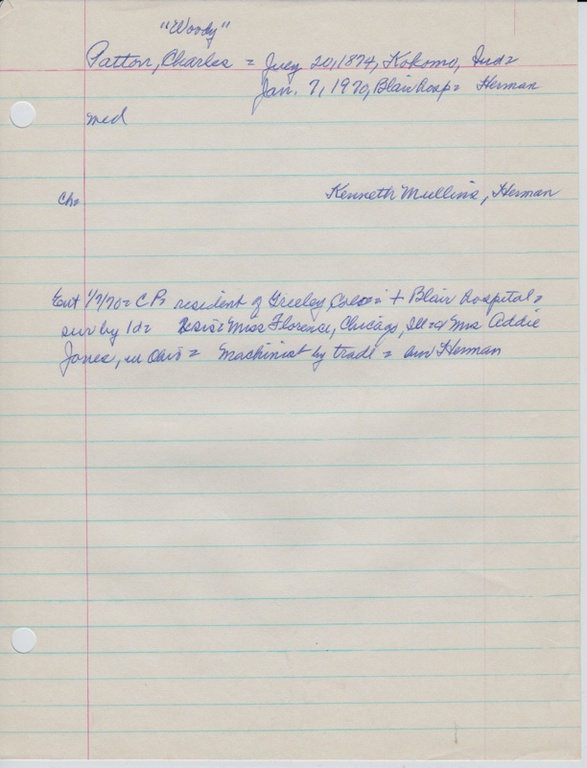 "Woody"
Patton, Charles = July 20, 1874, Kokomo, Ind=
Jan. 7, 1970, Blair Hosp= Herman
med
Ch=
Kenneth Mullins, Herman
Ent 1/7/70= C.P= resident of Greeley, + Blair Hospital=
sur by 1d= 2sis= Miss Florence, Chicago, Ill= & Mrs Addie
Jones, in Ohio= Machinist by trade = bur Herman